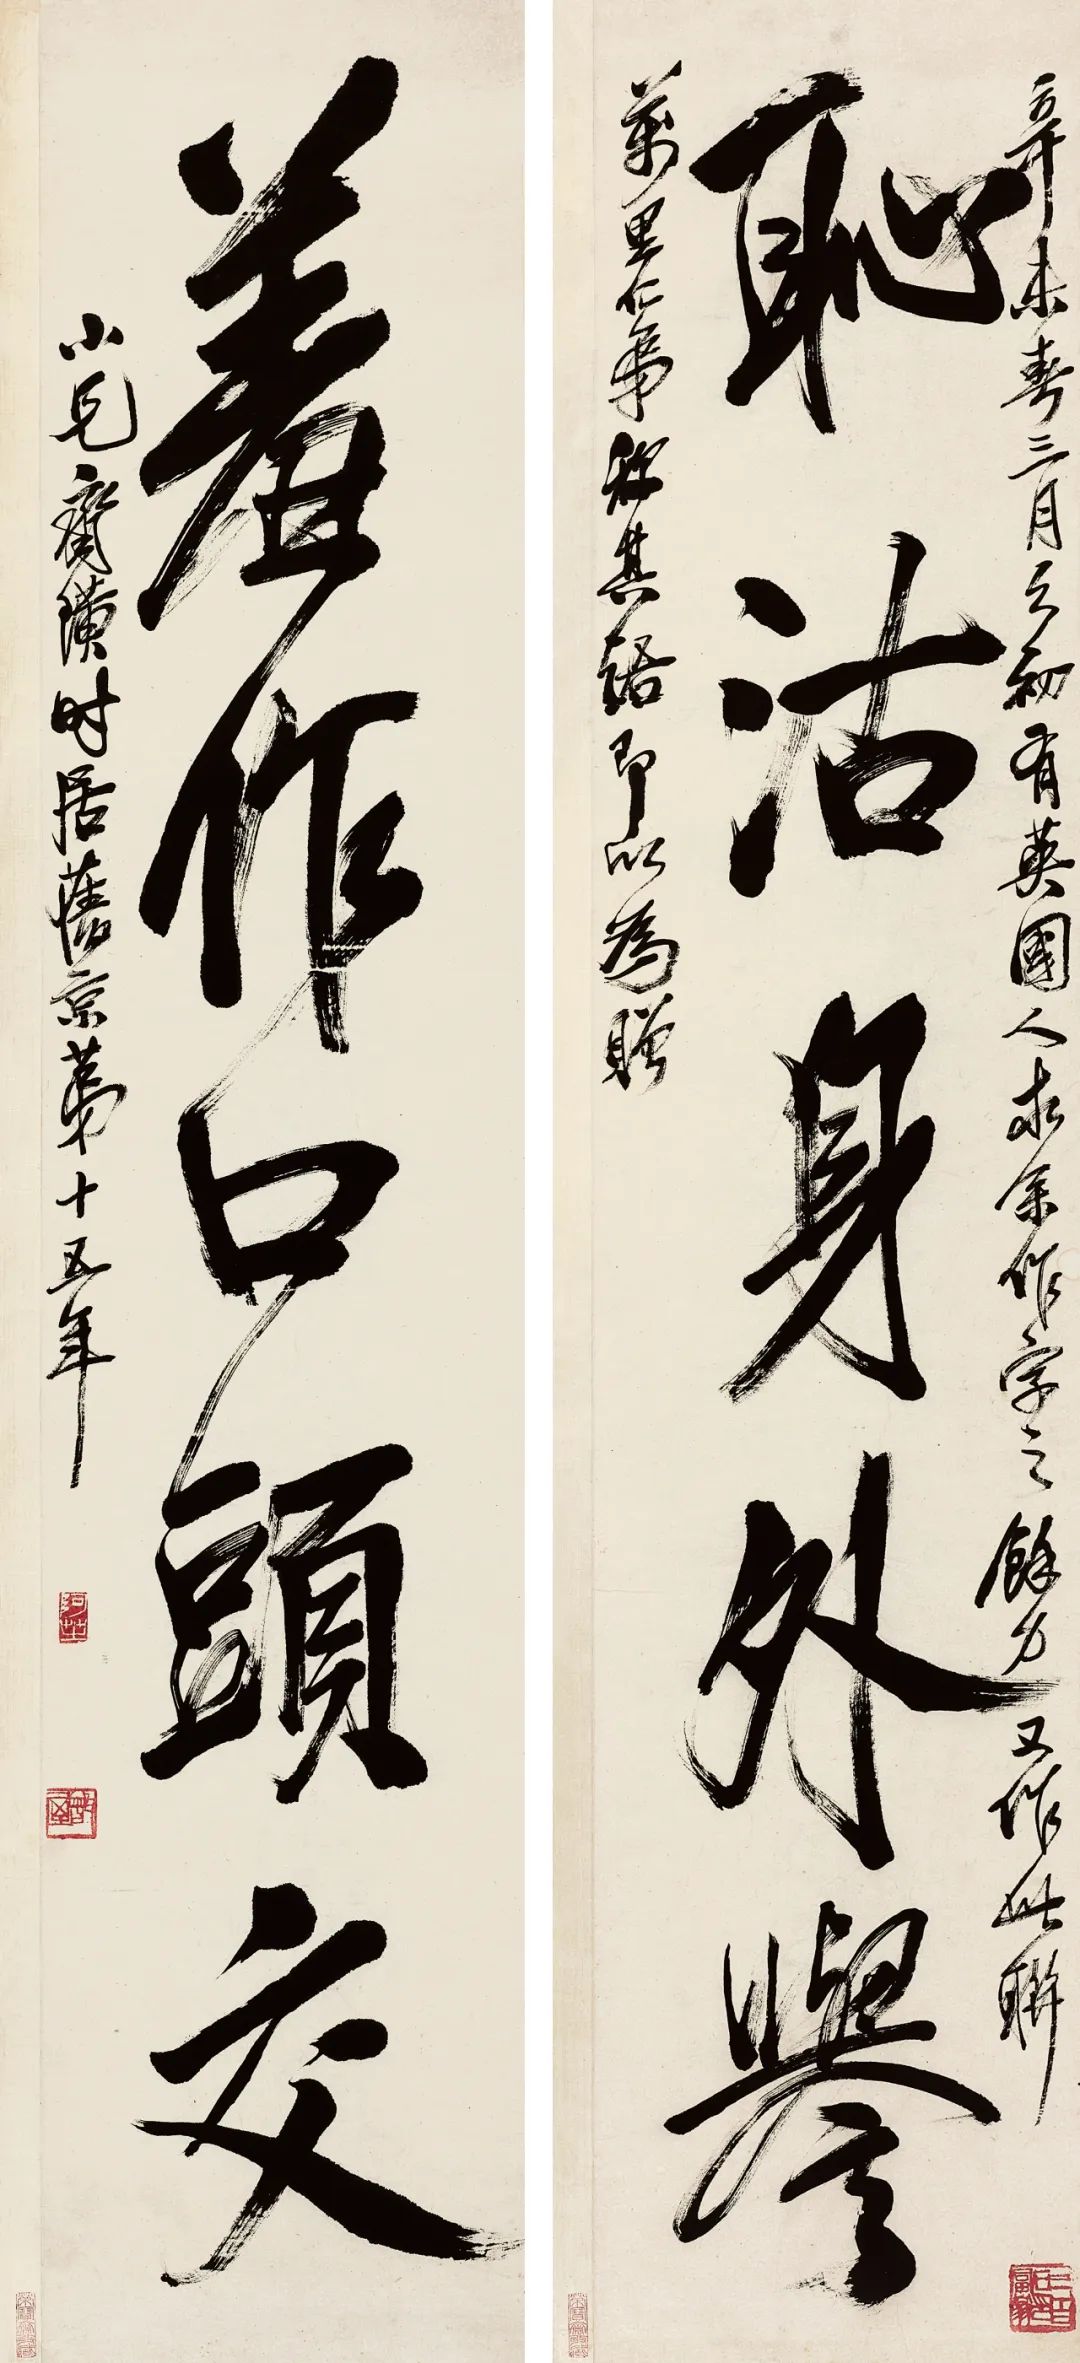 辛未春三月之初有英國人求余作字之餘力又作此聯
恥沽身外譽
萬里仁弟稱其語即以為贈
羞作口頭交
小兄齊璜時居舊京第十五年